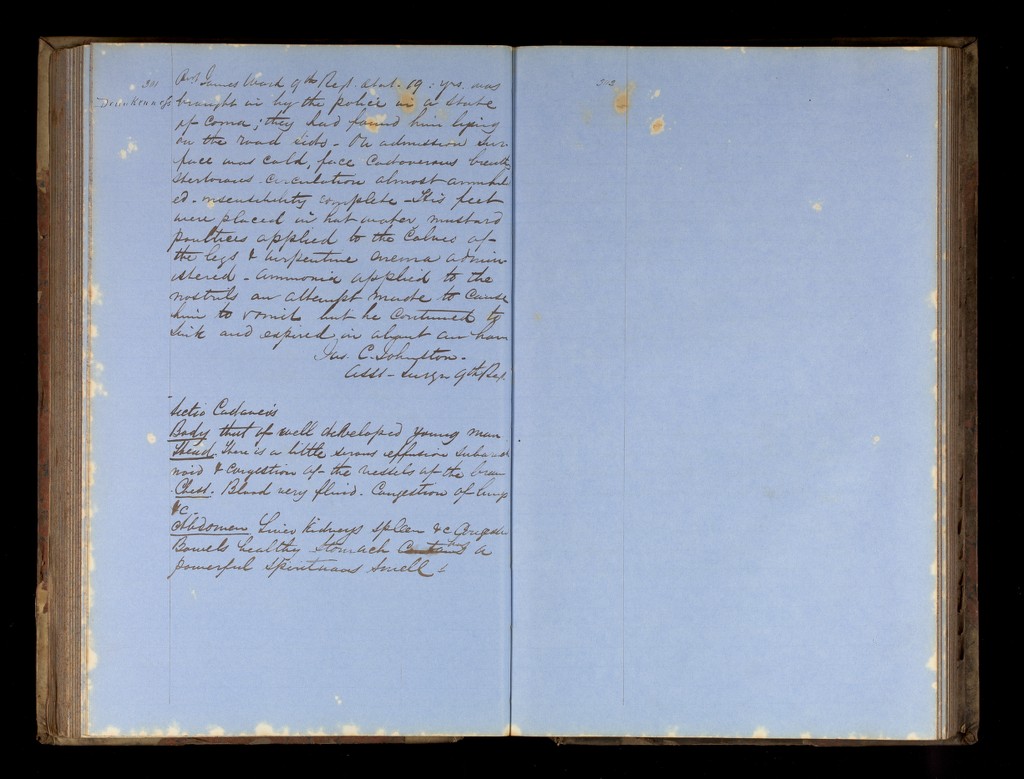 311
Drunkenness
Pvt James Ward 9th Regt. Aetat. 19: yrs. was
brought in by the police in a state
of Coma; they had found him lying
on the road side - On admission sur-
face was cold, face Cadaverous breath
Stertorous circulation almost annihil
ed - insensibility complete - His feet
were placed in hot water, mustard
poultices applied to the Calves of
the legs & turpentine enema admin
istered - ammonia applied to the
nostrils an attempt made to Cause
him to vomit but he Continued to
sink and expired in about an hour
Jas. C. Johnston.
Asst - Surgn 9th Regt
Sectio Cadaveris
Body that of well developed young man
Head. There is a little serous effusion subarach
noid & Congestion of the vessels of the brain
Chest. Blood very fluid. Congestion of lungs
&c -
Abdomen Liver Kidneys Spleen &c Congested
Bowels healthy Stomach has a
powerful Spirituous Smell
313